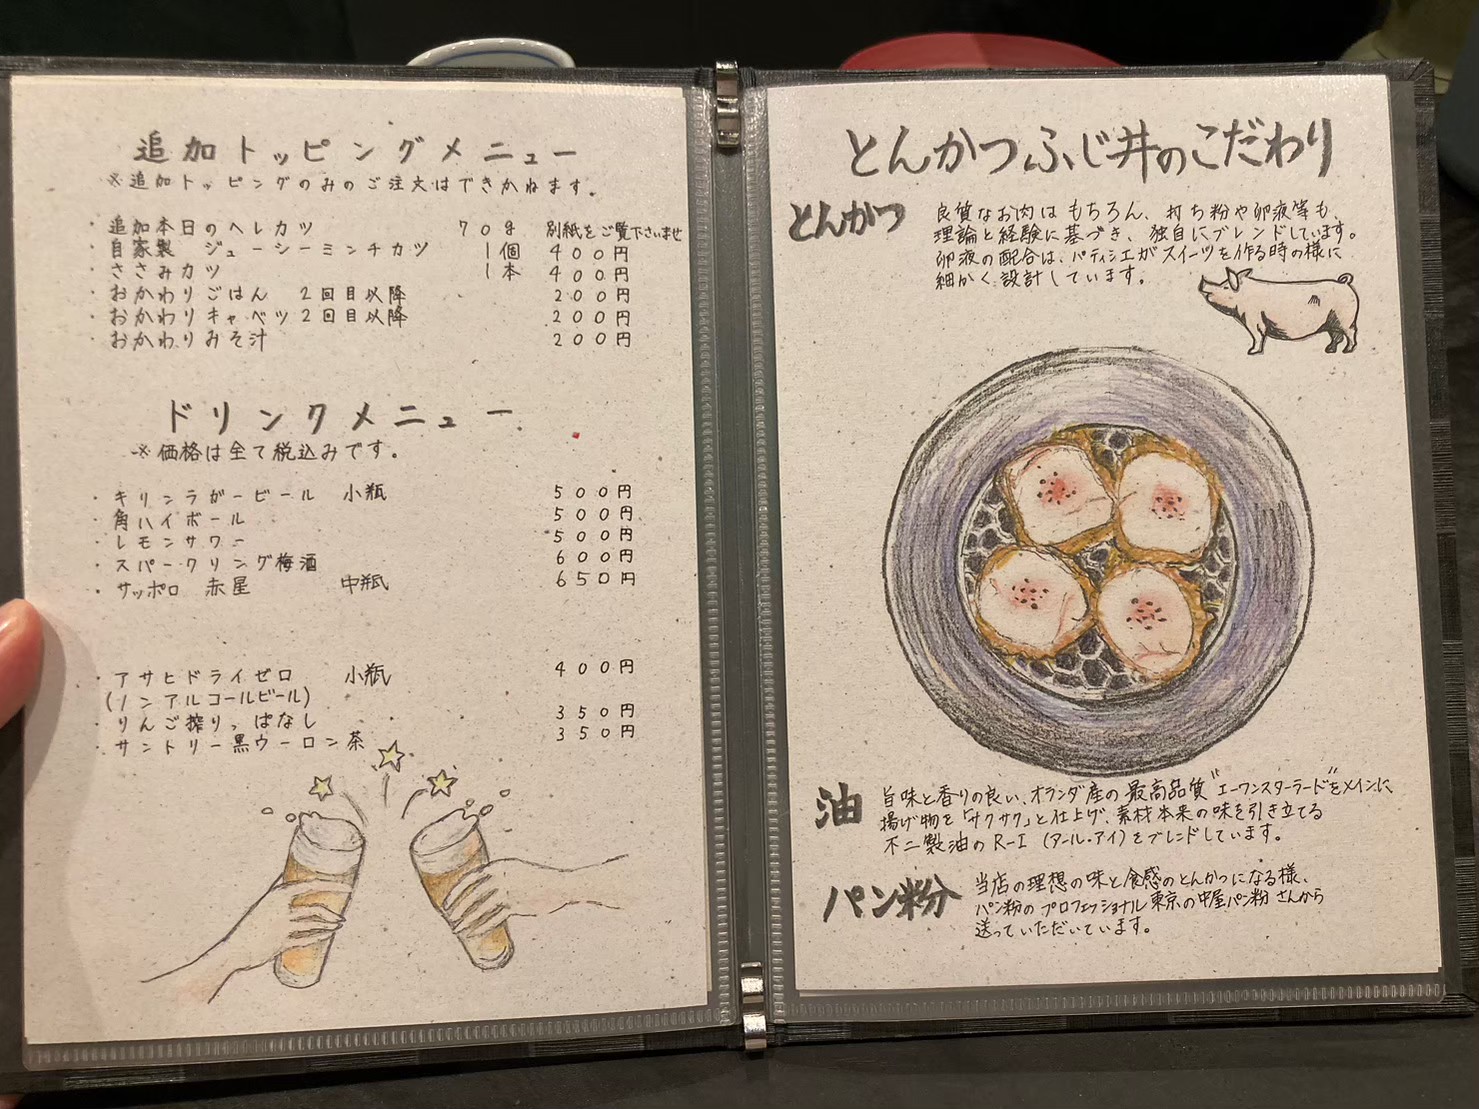 追加トッピングメニュー
※追加トッピングのみのご注文はできかねます。
・追加本日のヘレカツ 70g 別紙をご覧下さいませ
・自家製 ジューシーミンチカツ 1個 400円
・ささみカツ 1本 400円
・おかわりごはん 2回目以降 200円
・おかわりキャベツ2回目以降 200円
・おかわりみそ汁 200円
ドリンクメニュー
※価格は全て税込みです。
・キリンラガービール 小瓶 500円
・角ハイボール 500円
・レモンサワー 500円
・スパークリング梅酒 600円
・サッポロ 赤星 中瓶 650円
・アサヒドライゼロ 小瓶 400円
(ノンアルコールビール)
・りんご搾りっぱなし 350円
・サントリー黒ウーロン茶 350円
とんかつふじ井のこだわり
とんかつ
良質なお肉はもちろん、打ち粉や卵液等も、
理論と経験に基づき、独自にブレンドしています。
卵液の配合は、パティシエがスイーツを作る時の様に
細かく設計しています。
油
旨味と香りの良い、オランダ産の最高品質"エーワンスターラード"をメインに
揚げ物を「サクサク」と仕上げ、素材本来の味を引き立てる
不二製油のR-I(アール・アイ)をブレンドしています。
パン粉
当店の理想の味と食感のとんかつになる様、
パン粉のプロフェッショナル東京の中屋パン粉さんから
送っていただいています。